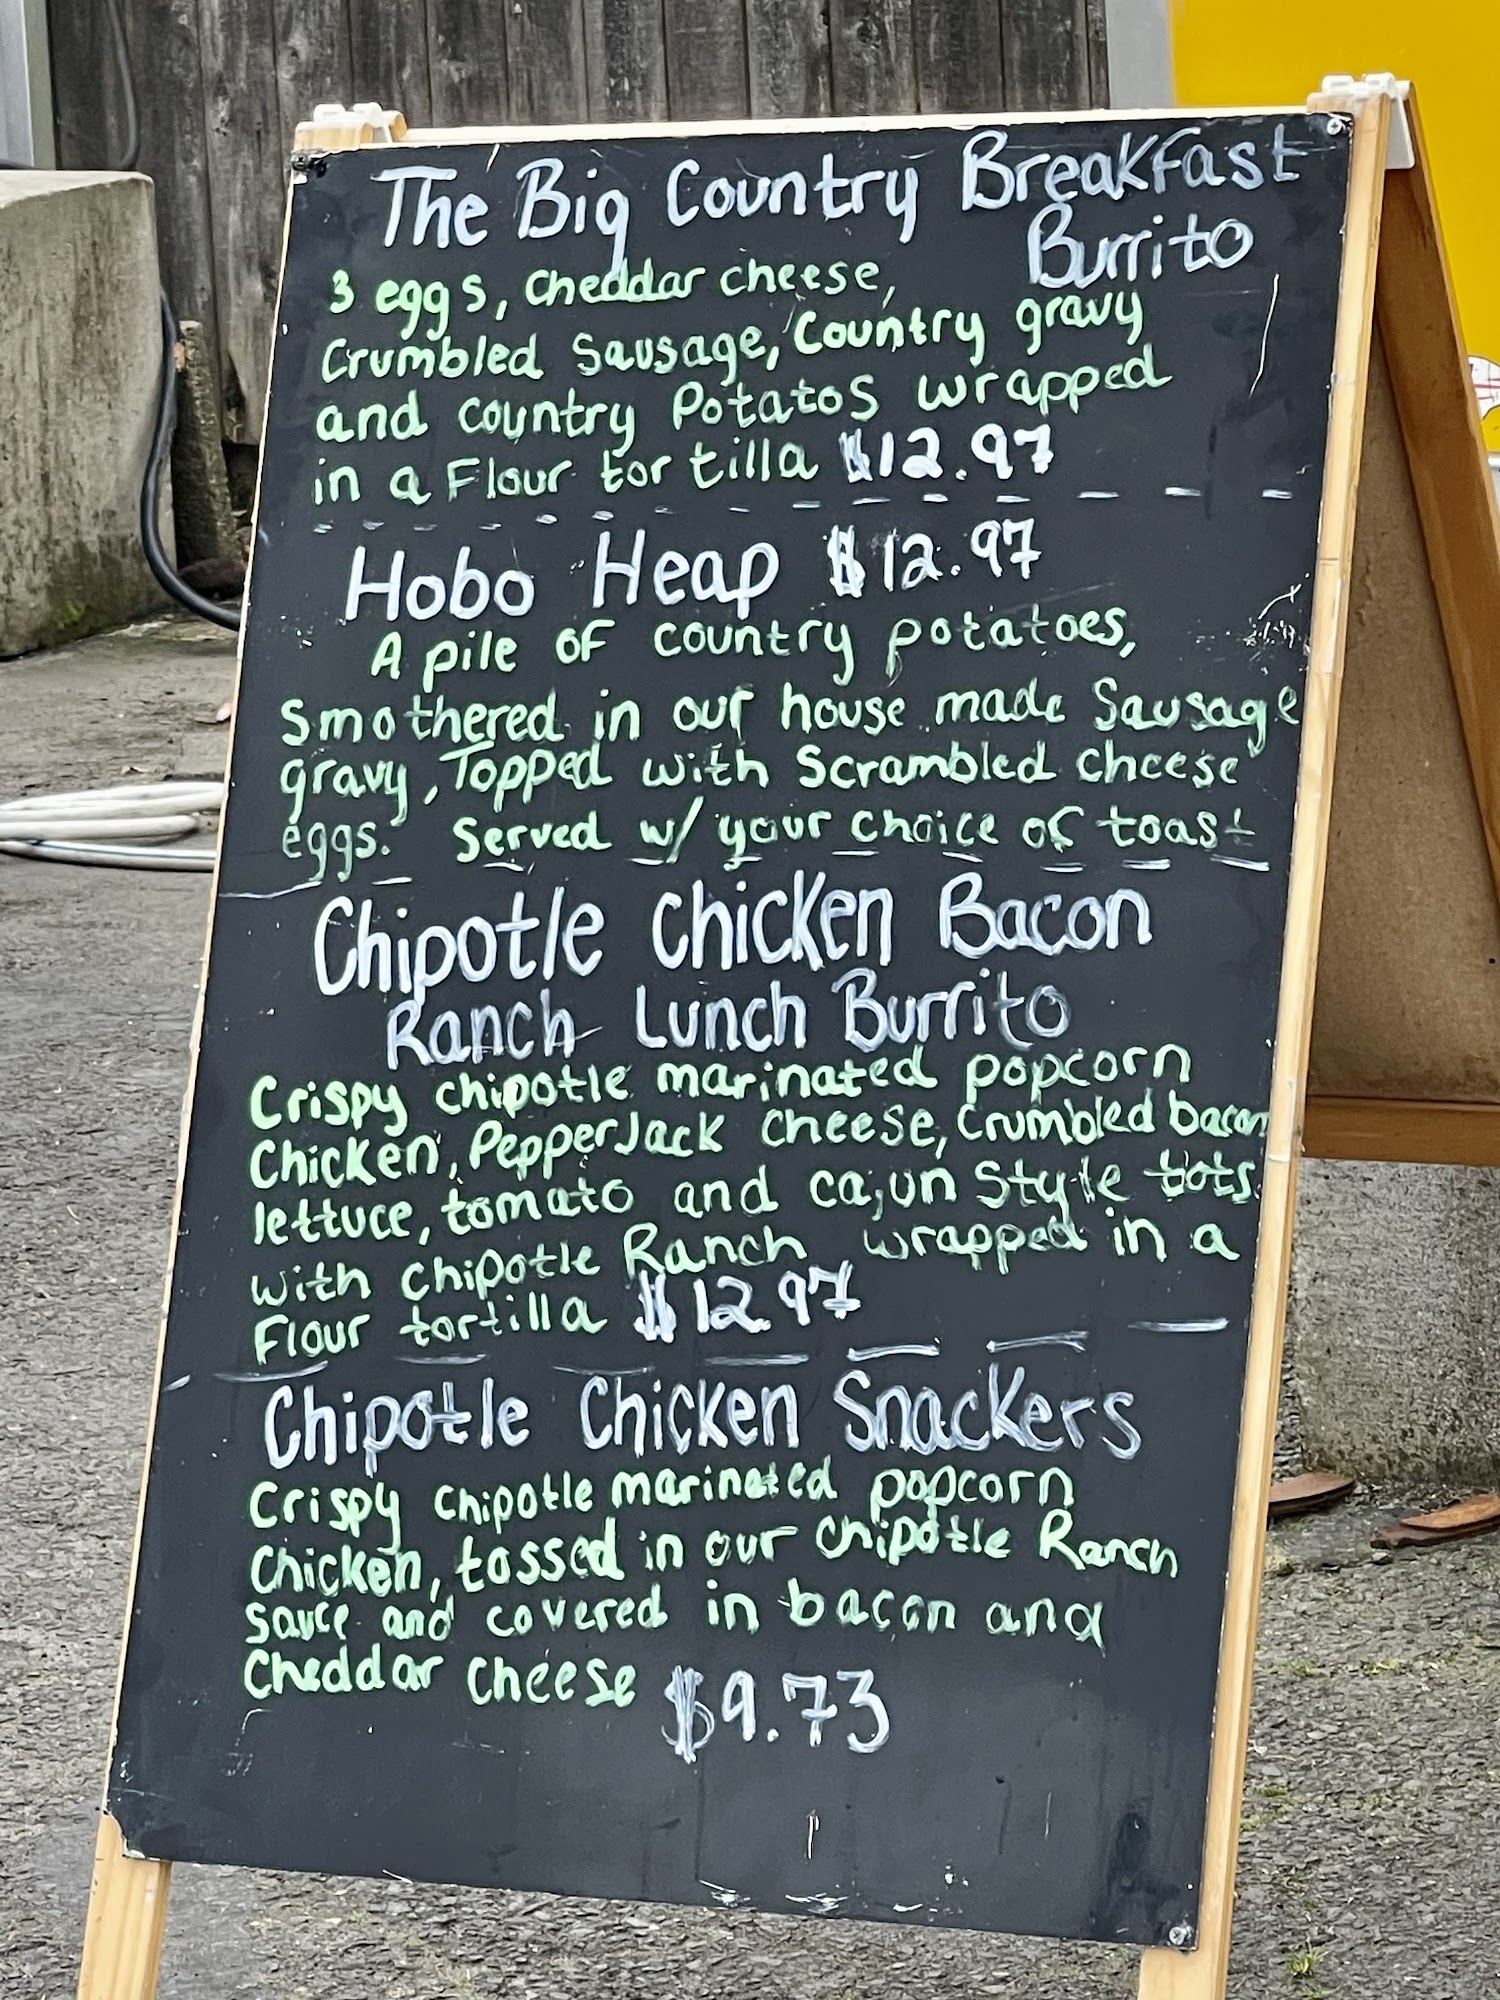 The Big Country Breakfast
Burrito
3 eggs, Cheddar cheese,
Crumbled Sausage, Country gravy
and country Potatos wrapped
in a Flour tortilla $12.97
Hobo Heap $12.97
A pile of country potatoes,
Smothered in our house made Sausage
gravy, Topped with Scrambled cheese
eggs. Served w/ your choice of toast
Chipotle Chicken Bacon
Ranch Lunch Burrito
Crispy chipotle marinated popcorn
Chicken, PepperJack Cheese, Crumbled bacon
lettuce, tomato and cajun style tots
with chipotle Ranch wrapped in a
Flour tortilla $12.97
Chipotle Chicken Snackers
Crispy Chipotle marinated popcorn
Chicken, tossed in our Chipotle Ranch
sauce and covered in bacon and
Cheddar Cheese $9.73